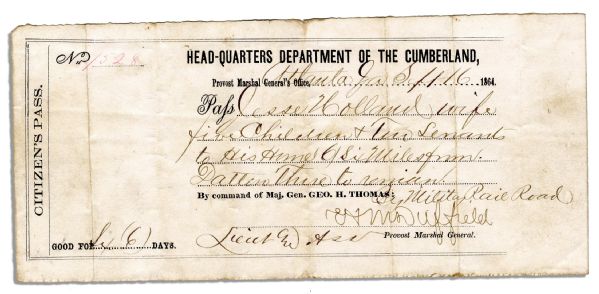 CITIZEN'S PASS.
No 1528
HEAD-QUARTERS DEPARTMENT OF THE CUMBERLAND,
Provost Marshal General's Office, Atlanta Ga Sept 16 1864.
Pass Jesse Holland wife
five Children & two Servants
to His Home Six Miles from
there to remain
By command of Maj. Gen. GEO. H. THOMAS:
By Military Rail Road
Provost Marshal General.
GOOD FOR Six (6) DAYS.
Lieut